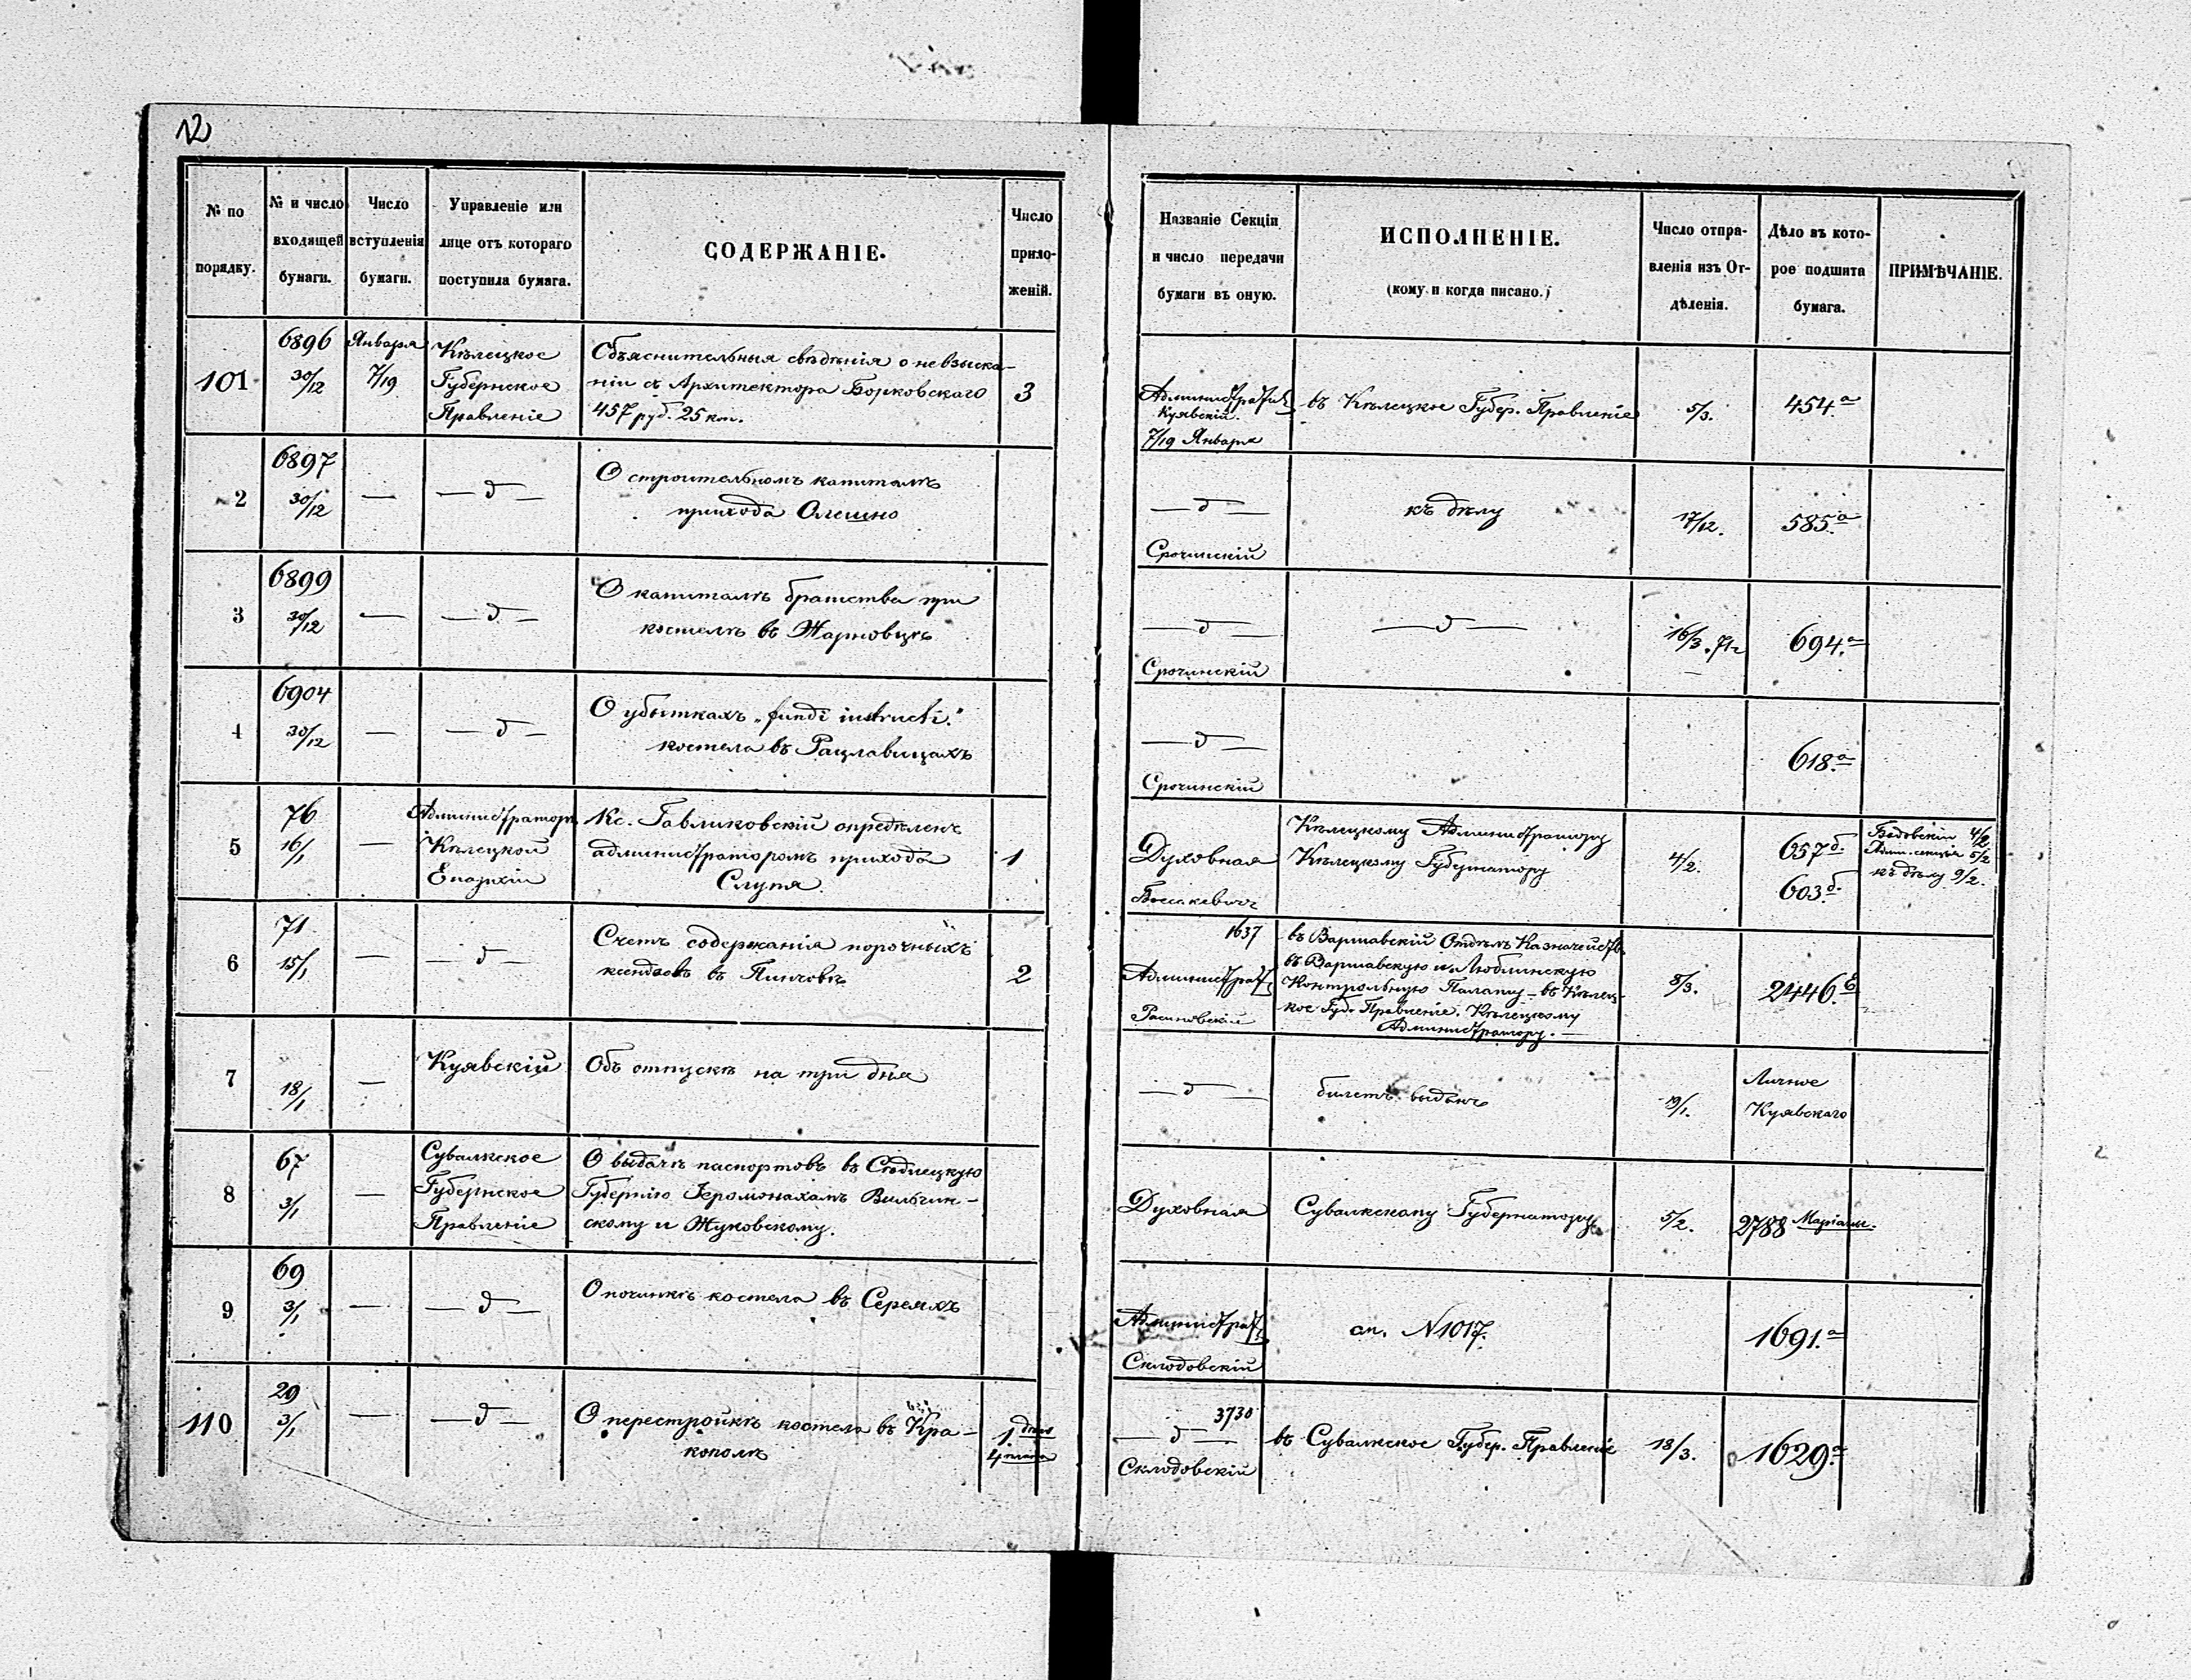 12
№ по порядку.
№ и число входящей бумаги.
Число вступленія бумаги.
Управленіе или лице отъ котораго поступила бумага.
СОДЕРЖАНІЕ.
Число приложеній.
Названіе Секціи и число передачи бумаги въ оную.
ИСПОЛНЕНІЕ.
(кому и когда писано.)
Число отправленія изъ Отдѣленія.
Дѣло въ которое подшита бумага.
ПРИМѢЧАНІЕ.
101
6896
30/12
Января
7/19
Кѣлецкое
Губернское
Правленіе
Объяснительныя свѣдѣнія о невзыска-
ніи съ Архитектора Борковскаго
457 руб. 25 коп.
3
Администрат.
Куявскій.
7/19 Января
въ Кѣлецкое Губер. Правленіе
5/3.
454.а
2
6897
30/12
—
— д —
О строительномъ капиталѣ
прихода Олешно
— д —
Срочинскій
къ дѣлу
17/12.
585.а
3
6899
30/12
—
— д —
О капиталѣ братства при
костелѣ въ Жарновцѣ
— д —
Срочинскій
— д —
16/3. 71г
694.а
4
6904
30/12
—
— д —
О убыткахъ „fundi instructi.“
костела въ Рацлавицахъ
— д —
Срочинскій
618.а
5
76
16/1
—
Администраторъ
Кѣлецкой
Епархіи
Кс. Гавликовскій опредѣленъ
администраторомъ прихода
Слупя.
1
Духовная
Кѣлецкому Администратору
Кѣлецкому Губернатору
4/2.
657б.
603.б.
4/2
Адм. секція 5/2
къ дѣлу 9/2.
6
71
15/1
—
— д —
Счетъ содержанія порочныхъ
ксендзовъ въ Пинчовѣ
2
1637
Администрат.
въ Варшавскій Отдѣлъ Казначейств.
въ Варшавскую и Люблинскую
Контрольную Палату — въ Кѣлец-
кое Губ. Правленіе. Кѣлецкому
Администратору. —
8/3.
2446.
7
18/1
—
Куявскій
Объ отпускѣ на три дня
— д —
билетъ выданъ
19/1.
Личное
Куявскаго
8
67
3/1
—
Сувалкское
Губернское
Правленіе
О выдачѣ паспортовъ въ Сѣдлецкую
Губернію Іеромонахамъ Вильчин-
скому и Жуковскому.
Духовная
Сувалкскому Губернатору
5/2.
2788 Маріамп.
9
69
3/1
—
— д —
О починкѣ костела въ Сереяхъ
Администрат.
Склодовскій
см. N 1017.
1691.а
110
29
3/1
—
— д —
О перестройкѣ костела въ Кра-
кополѣ
1 дѣло
4 плана
3730
— д —
Склодовскій
въ Сувалкское Губер. Правленіе
18/3.
1629.а